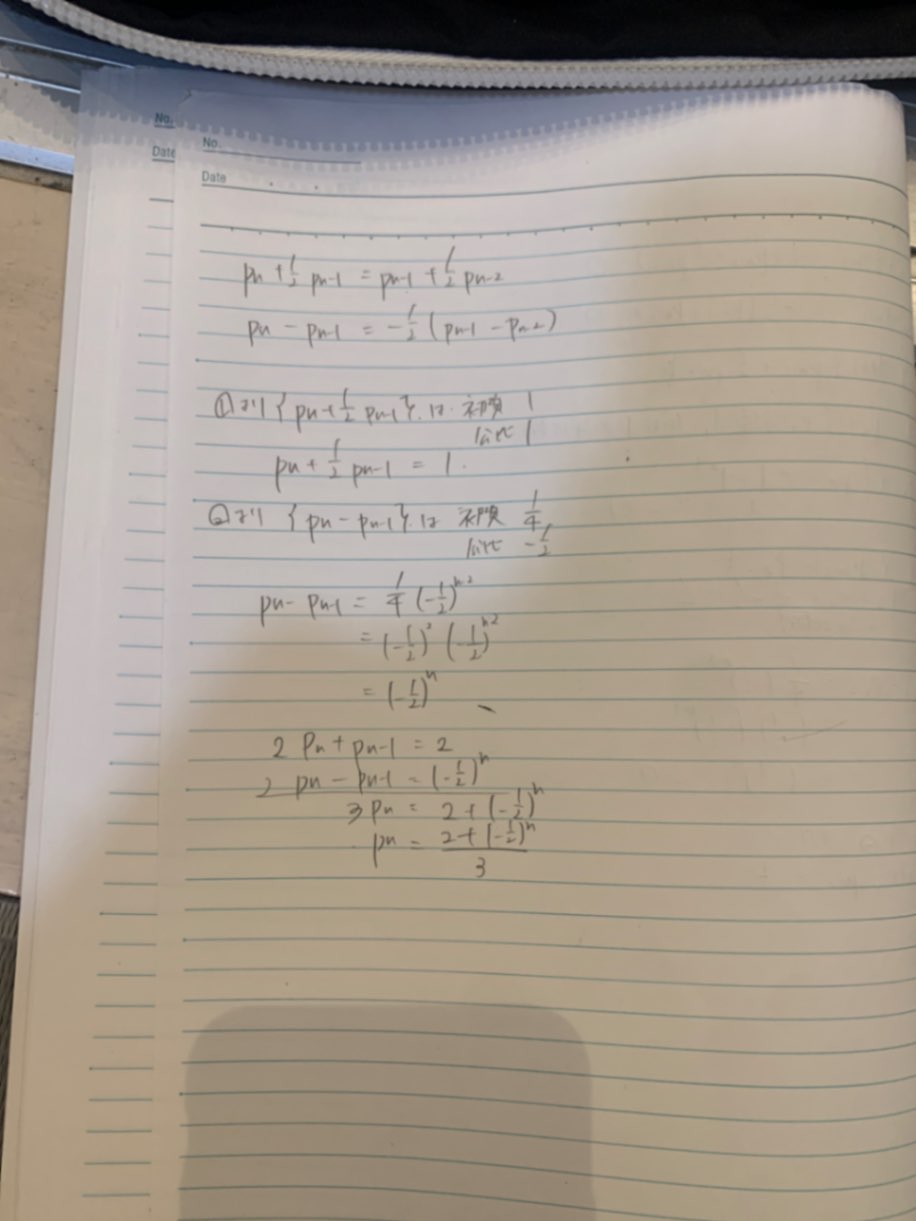 No.
Date
No.
Date
pn + 1/2 pn-1 = pn-1 + 1/2 pn-2
pn - pn-1 = -1/2 (pn-1 - pn-2)
①より {pn + 1/2 pn-1}. は. 初項 1
公比 1
pn + 1/2 pn-1 = 1.
②より {pn - pn-1}. は 初項 1/4
公比 -1/2
pn - pn-1 = 1/4 (-1/2)^n-2
= (-1/2)^2 (-1/2)^n-2
= (-1/2)^n
2 Pn + pn-1 = 2
pn - pn-1 = (-1/2)^n
3 pn = 2 + (-1/2)^n
pn = 2 + (-1/2)^n / 3